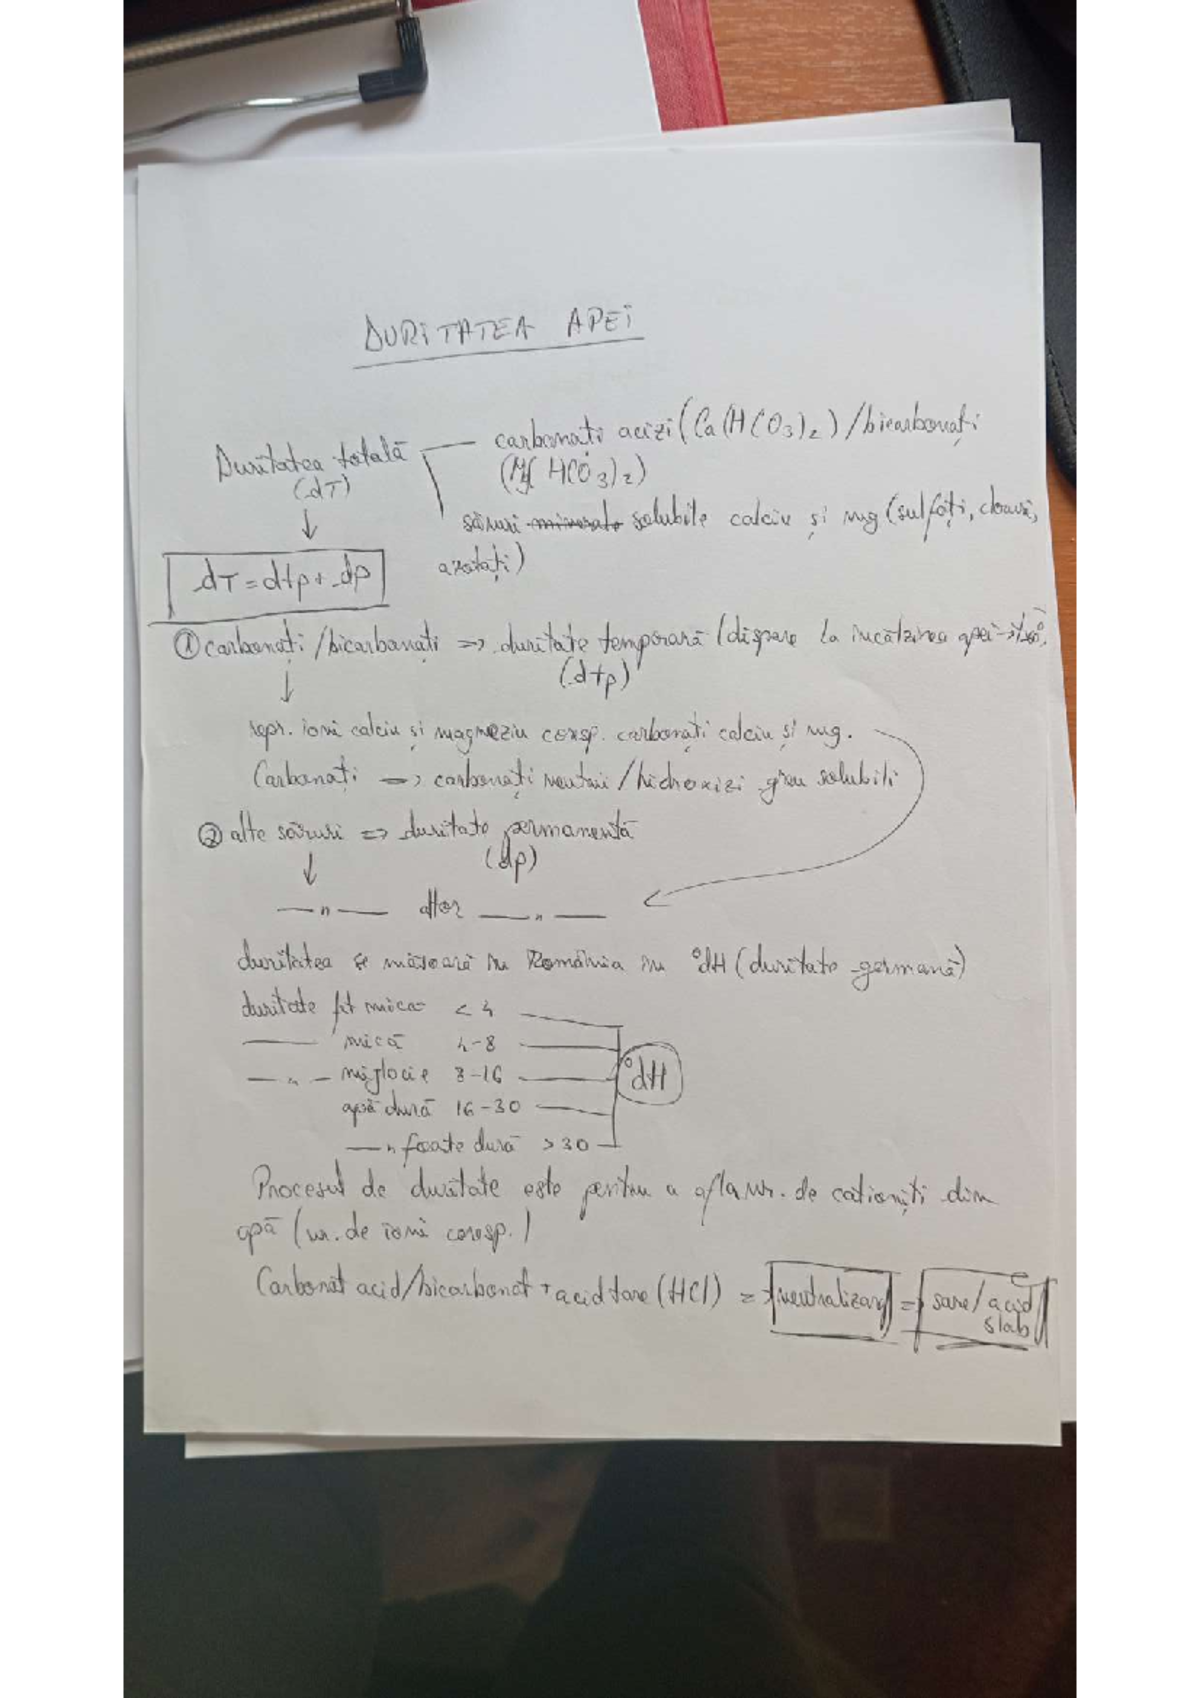 DURITATEA APEI
Duritatea totală — carbonați acizi (Ca(HCO3)2) / bicarbonați
(dT) (Mg(HCO3)2)
săruri solubile calciu și mg (sulfați, cloruri,
azotați)
dT = dtp + dp
① carbonați / bicarbonați => duritate temporară (dispare la încălzirea apei →
(dtp)
repr. ioni calciu și magneziu coresp. carbonați calciu și mg.
Carbonați => carbonați neutrii / hidroxizi greu solubili
② alte săruri => duritate permanentă
(dp)
—"— altor —"—
duritatea se măsoară în România în °dH (duritate germană)
duritate ft mica < 4
— mică 4-8
—"— mijlocie 8-16
apă dură 16-30
—"foarte dură > 30
°dH
Procesul de duritate este pentru a afla nr. de cationiți din
apă (nr. de ioni coresp.)
Carbonat acid/bicarbonat + acid tare (HCl) => neutralizare => sare / acid
slab